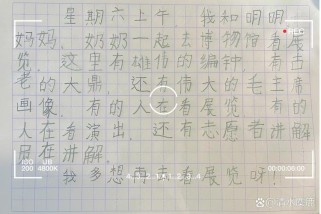 星期六上午 我和明明
妈妈，奶奶一起去博物馆看展
览，这里有雄伟的编钟，有古
老的大鼎，还有伟大的毛主席
画像，有的人在看展览，有的
人在看演出，还有志愿者讲解
在讲解。
我多想再去看展览呀！
ISO
200
UB
4800K
00:00:06:00